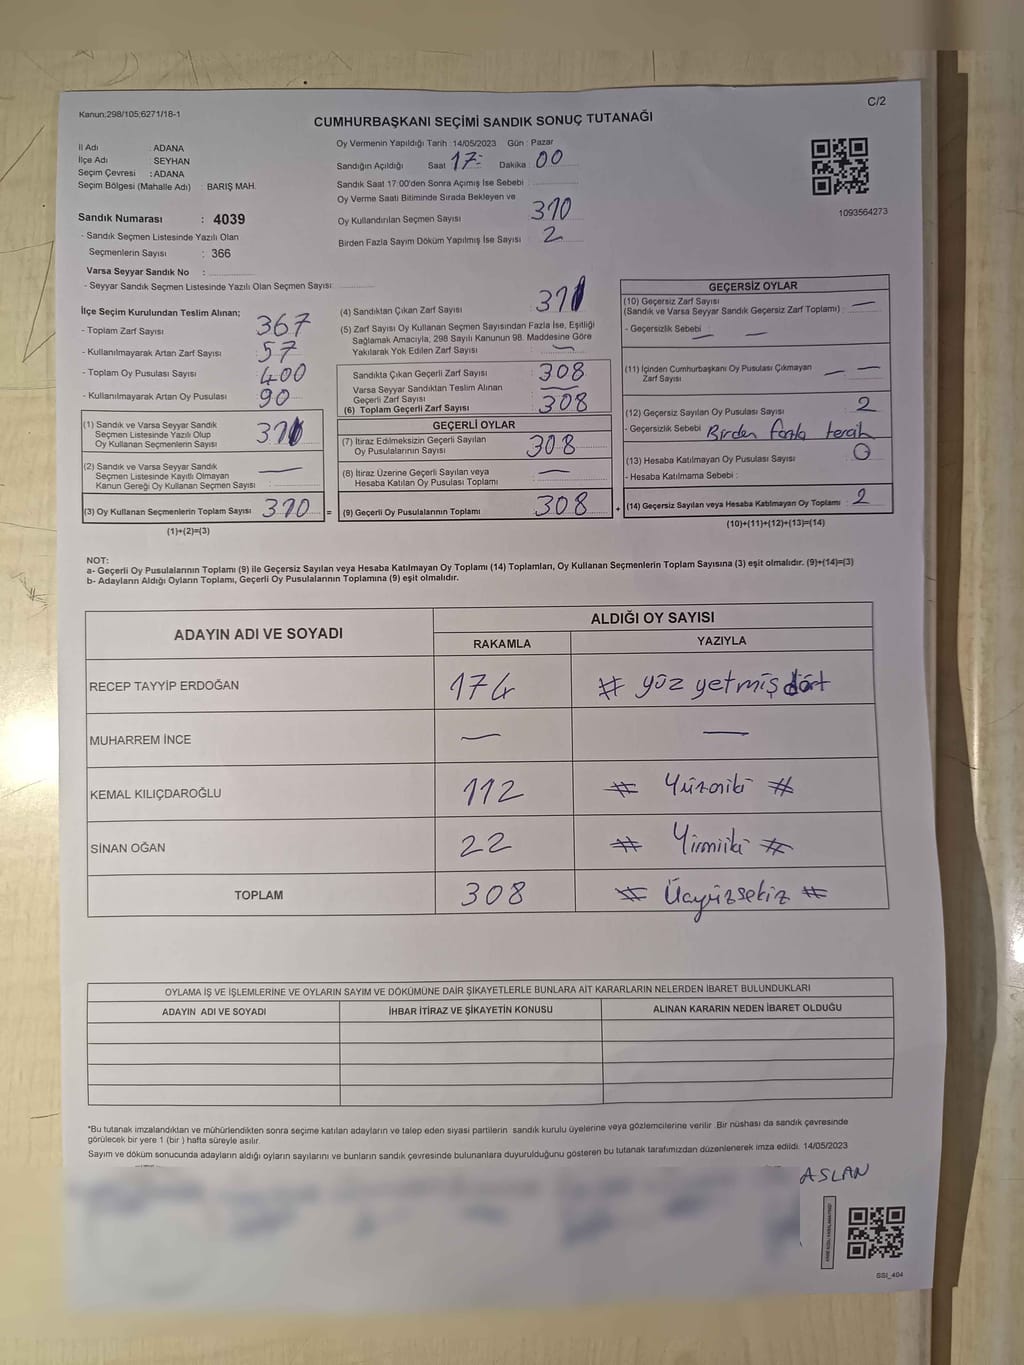 Kanun;298/105;6271/18-1
C/2
CUMHURBAŞKANI SEÇİMİ SANDIK SONUÇ TUTANAĞI
İl Adı : ADANA
İlçe Adı : SEYHAN
Seçim Çevresi : ADANA
Seçim Bölgesi (Mahalle Adı) : BARIŞ MAH.
Sandık Numarası : 4039
- Sandık Seçmen Listesinde Yazılı Olan
Seçmenlerin Sayısı : 366
Varsa Seyyar Sandık No :
- Seyyar Sandık Seçmen Listesinde Yazılı Olan Seçmen Sayısı:
Oy Vermenin Yapıldığı Tarih : 14/05/2023 Gün : Pazar
Sandığın Açıldığı Saat 17: Dakika : 00
Sandık Saat 17:00'den Sonra Açımış İse Sebebi :
Oy Verme Saati Bitiminde Sırada Bekleyen ve
Oy Kullandırılan Seçmen Sayısı 310
Birden Fazla Sayım Döküm Yapılmış İse Sayısı : 2
1093564273
İlçe Seçim Kurulundan Teslim Alınan;
- Toplam Zarf Sayısı : 367
- Kullanılmayarak Artan Zarf Sayısı : 57
- Toplam Oy Pusulası Sayısı : 400
- Kullanılmayarak Artan Oy Pusulası : 90
(1) Sandık ve Varsa Seyyar Sandık
Seçmen Listesinde Yazılı Olup
Oy Kullanan Seçmenlerin Sayısı
(2) Sandık ve Varsa Seyyar Sandık
Seçmen Listesinde Kayıtlı Olmayan
Kanun Gereği Oy Kullanan Seçmen Sayısı : —
(3) Oy Kullanan Seçmenlerin Toplam Sayısı : 310 =
(1)+(2)=(3)
(4) Sandıktan Çıkan Zarf Sayısı :
(5) Zarf Sayısı Oy Kullanan Seçmen Sayısından Fazla İse, Eşitliği
Sağlamak Amacıyla, 298 Sayılı Kanunun 98. Maddesine Göre
Yakılarak Yok Edilen Zarf Sayısı : —
Sandıkta Çıkan Geçerli Zarf Sayısı : 308
Varsa Seyyar Sandıktan Teslim Alınan
Geçerli Zarf Sayısı : —
(6) Toplam Geçerli Zarf Sayısı : 308
GEÇERLİ OYLAR
(7) İtiraz Edilmeksizin Geçerli Sayılan
Oy Pusulalarının Sayısı : 308
(8) İtiraz Üzerine Geçerli Sayılan veya
Hesaba Katılan Oy Pusulası Toplamı : —
(9) Geçerli Oy Pusulalarının Toplamı : 308 +
GEÇERSİZ OYLAR
(10) Geçersiz Zarf Sayısı
(Sandık ve Varsa Seyyar Sandık Geçersiz Zarf Toplamı) : —
- Geçersizlik Sebebi : — —
(11) İçinden Cumhurbaşkanı Oy Pusulası Çıkmayan
Zarf Sayısı : — —
(12) Geçersiz Sayılan Oy Pusulası Sayısı : 2
- Geçersizlik Sebebi : Birden fazla tercih
(13) Hesaba Katılmayan Oy Pusulası Sayısı : 0
- Hesaba Katılmama Sebebi :
(14) Geçersiz Sayılan veya Hesaba Katılmayan Oy Toplamı : 2
(10)+(11)+(12)+(13)=(14)
NOT:
a- Geçerli Oy Pusulalarının Toplamı (9) ile Geçersiz Sayılan veya Hesaba Katılmayan Oy Toplamı (14) Toplamları, Oy Kullanan Seçmenlerin Toplam Sayısına (3) eşit olmalıdır. (9)+(14)=(3)
b- Adayların Aldığı Oyların Toplamı, Geçerli Oy Pusulalarının Toplamına (9) eşit olmalıdır.
ADAYIN ADI VE SOYADI
ALDIĞI OY SAYISI
RAKAMLA YAZIYLA
RECEP TAYYİP ERDOĞAN 174 # yüz yetmiş dört
MUHARREM İNCE — —
KEMAL KILIÇDAROĞLU 112 # Yüzoniki #
SİNAN OĞAN 22 # Yirmiiki #
TOPLAM 308 # Üçyüzsekiz #
OYLAMA İŞ VE İŞLEMLERİNE VE OYLARIN SAYIM VE DÖKÜMÜNE DAİR ŞİKAYETLERLE BUNLARA AİT KARARLARIN NELERDEN İBARET BULUNDUKLARI
ADAYIN ADI VE SOYADI İHBAR İTİRAZ VE ŞİKAYETİN KONUSU ALINAN KARARIN NEDEN İBARET OLDUĞU
*Bu tutanak imzalandıktan ve mühürlendikten sonra seçime katılan adayların ve talep eden siyasi partilerin sandık kurulu üyelerine veya gözlemcilerine verilir. Bir nüshası da sandık çevresinde
görülecek bir yere 1 (bir ) hafta süreyle asılır.
Sayım ve döküm sonucunda adayların aldığı oyların sayılarını ve bunların sandık çevresinde bulunanlara duyurulduğunu gösteren bu tutanak tarafımızdan düzenlenerek imza edildi. 14/05/2023
ASLAN
SSI_404